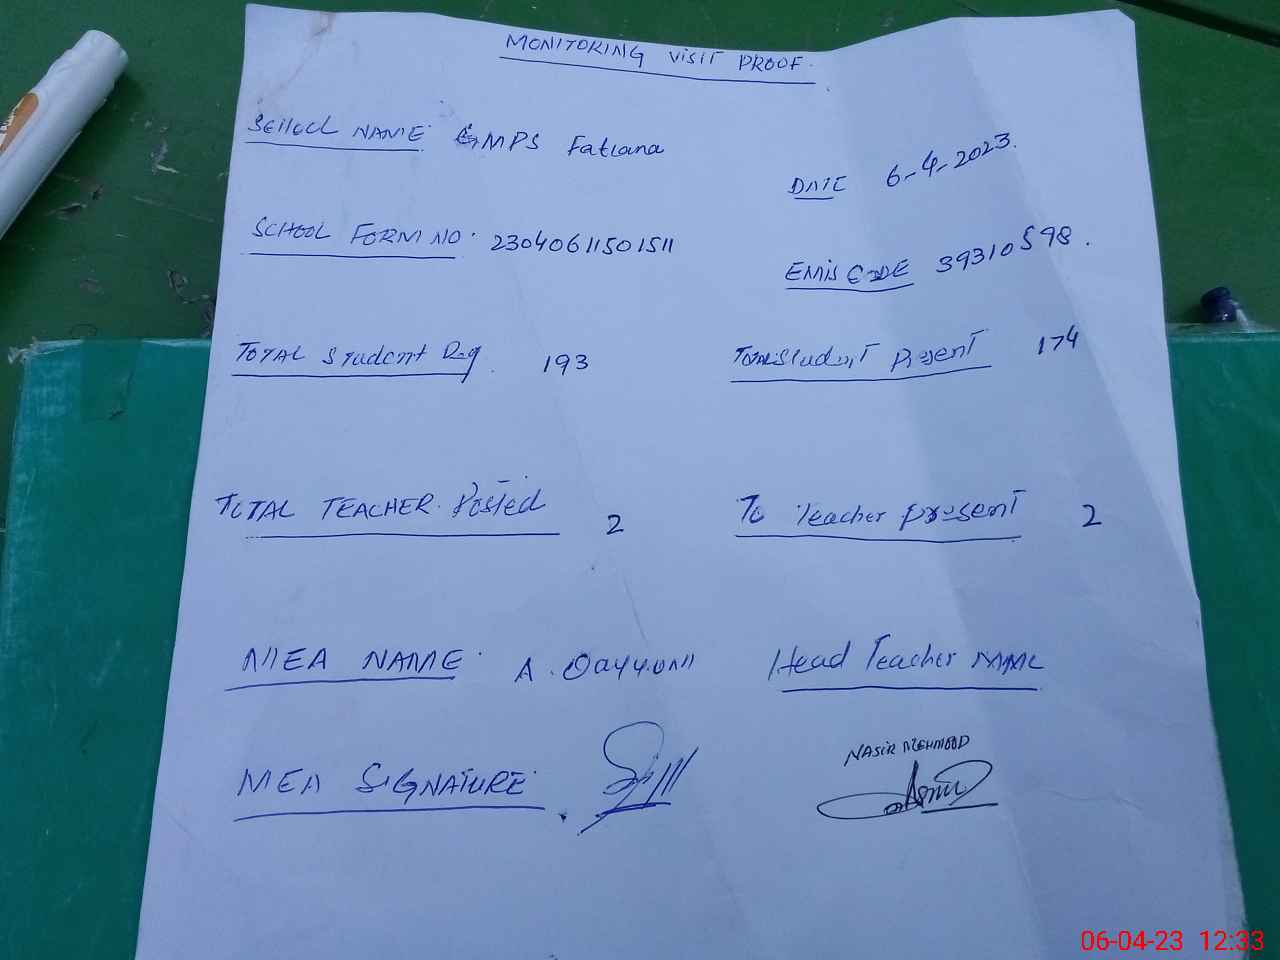 MONITORING VISIT PROOF.
SCHOOL NAME: GMPS Fatiana
DATE 6-4-2023.
SCHOOL FORM NO. 23040611501511
EMIS CODE 39310598.
TOTAL Student Reg. 193
TOTAL Student Present 174
TOTAL TEACHER Posted 2
To Teacher present 2
MEA NAME: A. Qayyum
Head Teacher NAME
NASIR MEHMOOD
MEA SIGNATURE:
06-04-23 12:33